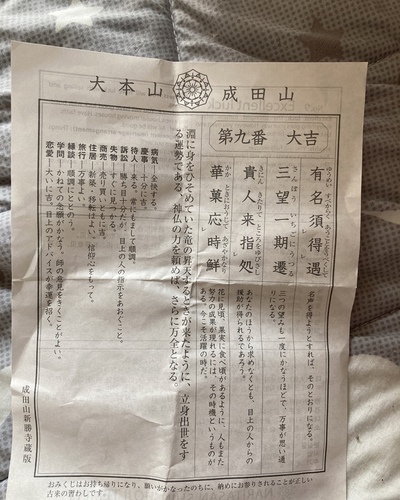 大本山 成田山
第九番 大吉
有名須得遇
名声を得ようとすれば、そのとおりになる。
三望一期遷
さんぼう いちごにうつる
三つの望みも一度にかなうほどで、万事が思い通
りになる。
貴人来指処
きにん きたりて ところをゆびさし
あなたのほうから求めなくとも、目上の人からの
援助が得られるであろう。
華菓応時鮮
かか ときにおうじて あざやかなり
花に見頃、果実に食べ頃があるように、人もまた
努力の成果が現れるには、その時機というものが
ある。今こそ活躍の時だ。
淵に身をひそめていた竜の昇天するときが来たように、立身出世をす
る運勢である。神仏の力を頼めば、さらに万全となる。
病気…全快する。
慶事…十分に吉。
待人…来る。常がもまして順調。
訴訟…勝ち目十分だが、目上の人の指示をあおぐこと。
失物…すぐに見つかる。
商売…売り買いともに吉。
住居…新築、移転はよい。信仰心をもって。
旅行…万事よい。
縁談…順調にととのう。
学問…かねての念願がかなう。師の意見をきくことがよい。
恋愛…大いに吉。目上の人のアドバイスが幸運を招く。
成田山新勝寺蔵版
おみくじはお持ち帰りになり、願いがかなったのちに、納めにお参りされることが正しい
古来の習わしです。